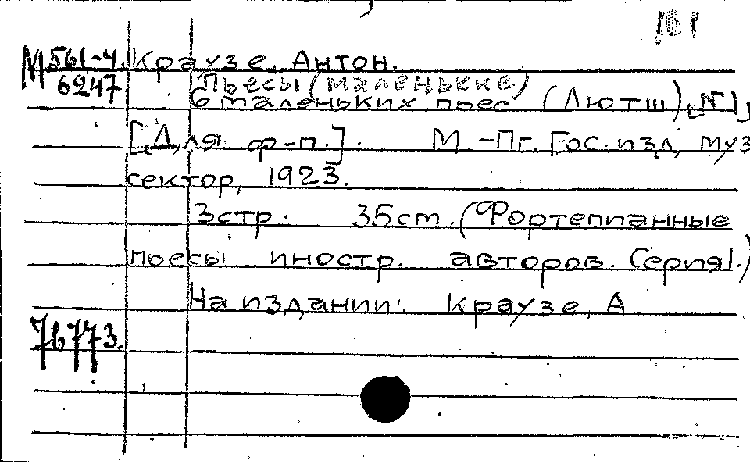 М 561-4 Краузе, Антон.
6247 Пьесы (маленькие)
6 маленьких пьес (Лютш), №1,
[Для ф-п.]. М.-Пг. Гос. изд, муз
сектор, 1923.
3стр. 35cm. (Фортепианные
пьесы иностр. авторов. Серия I.)
На издании: Краузе, А
76773.